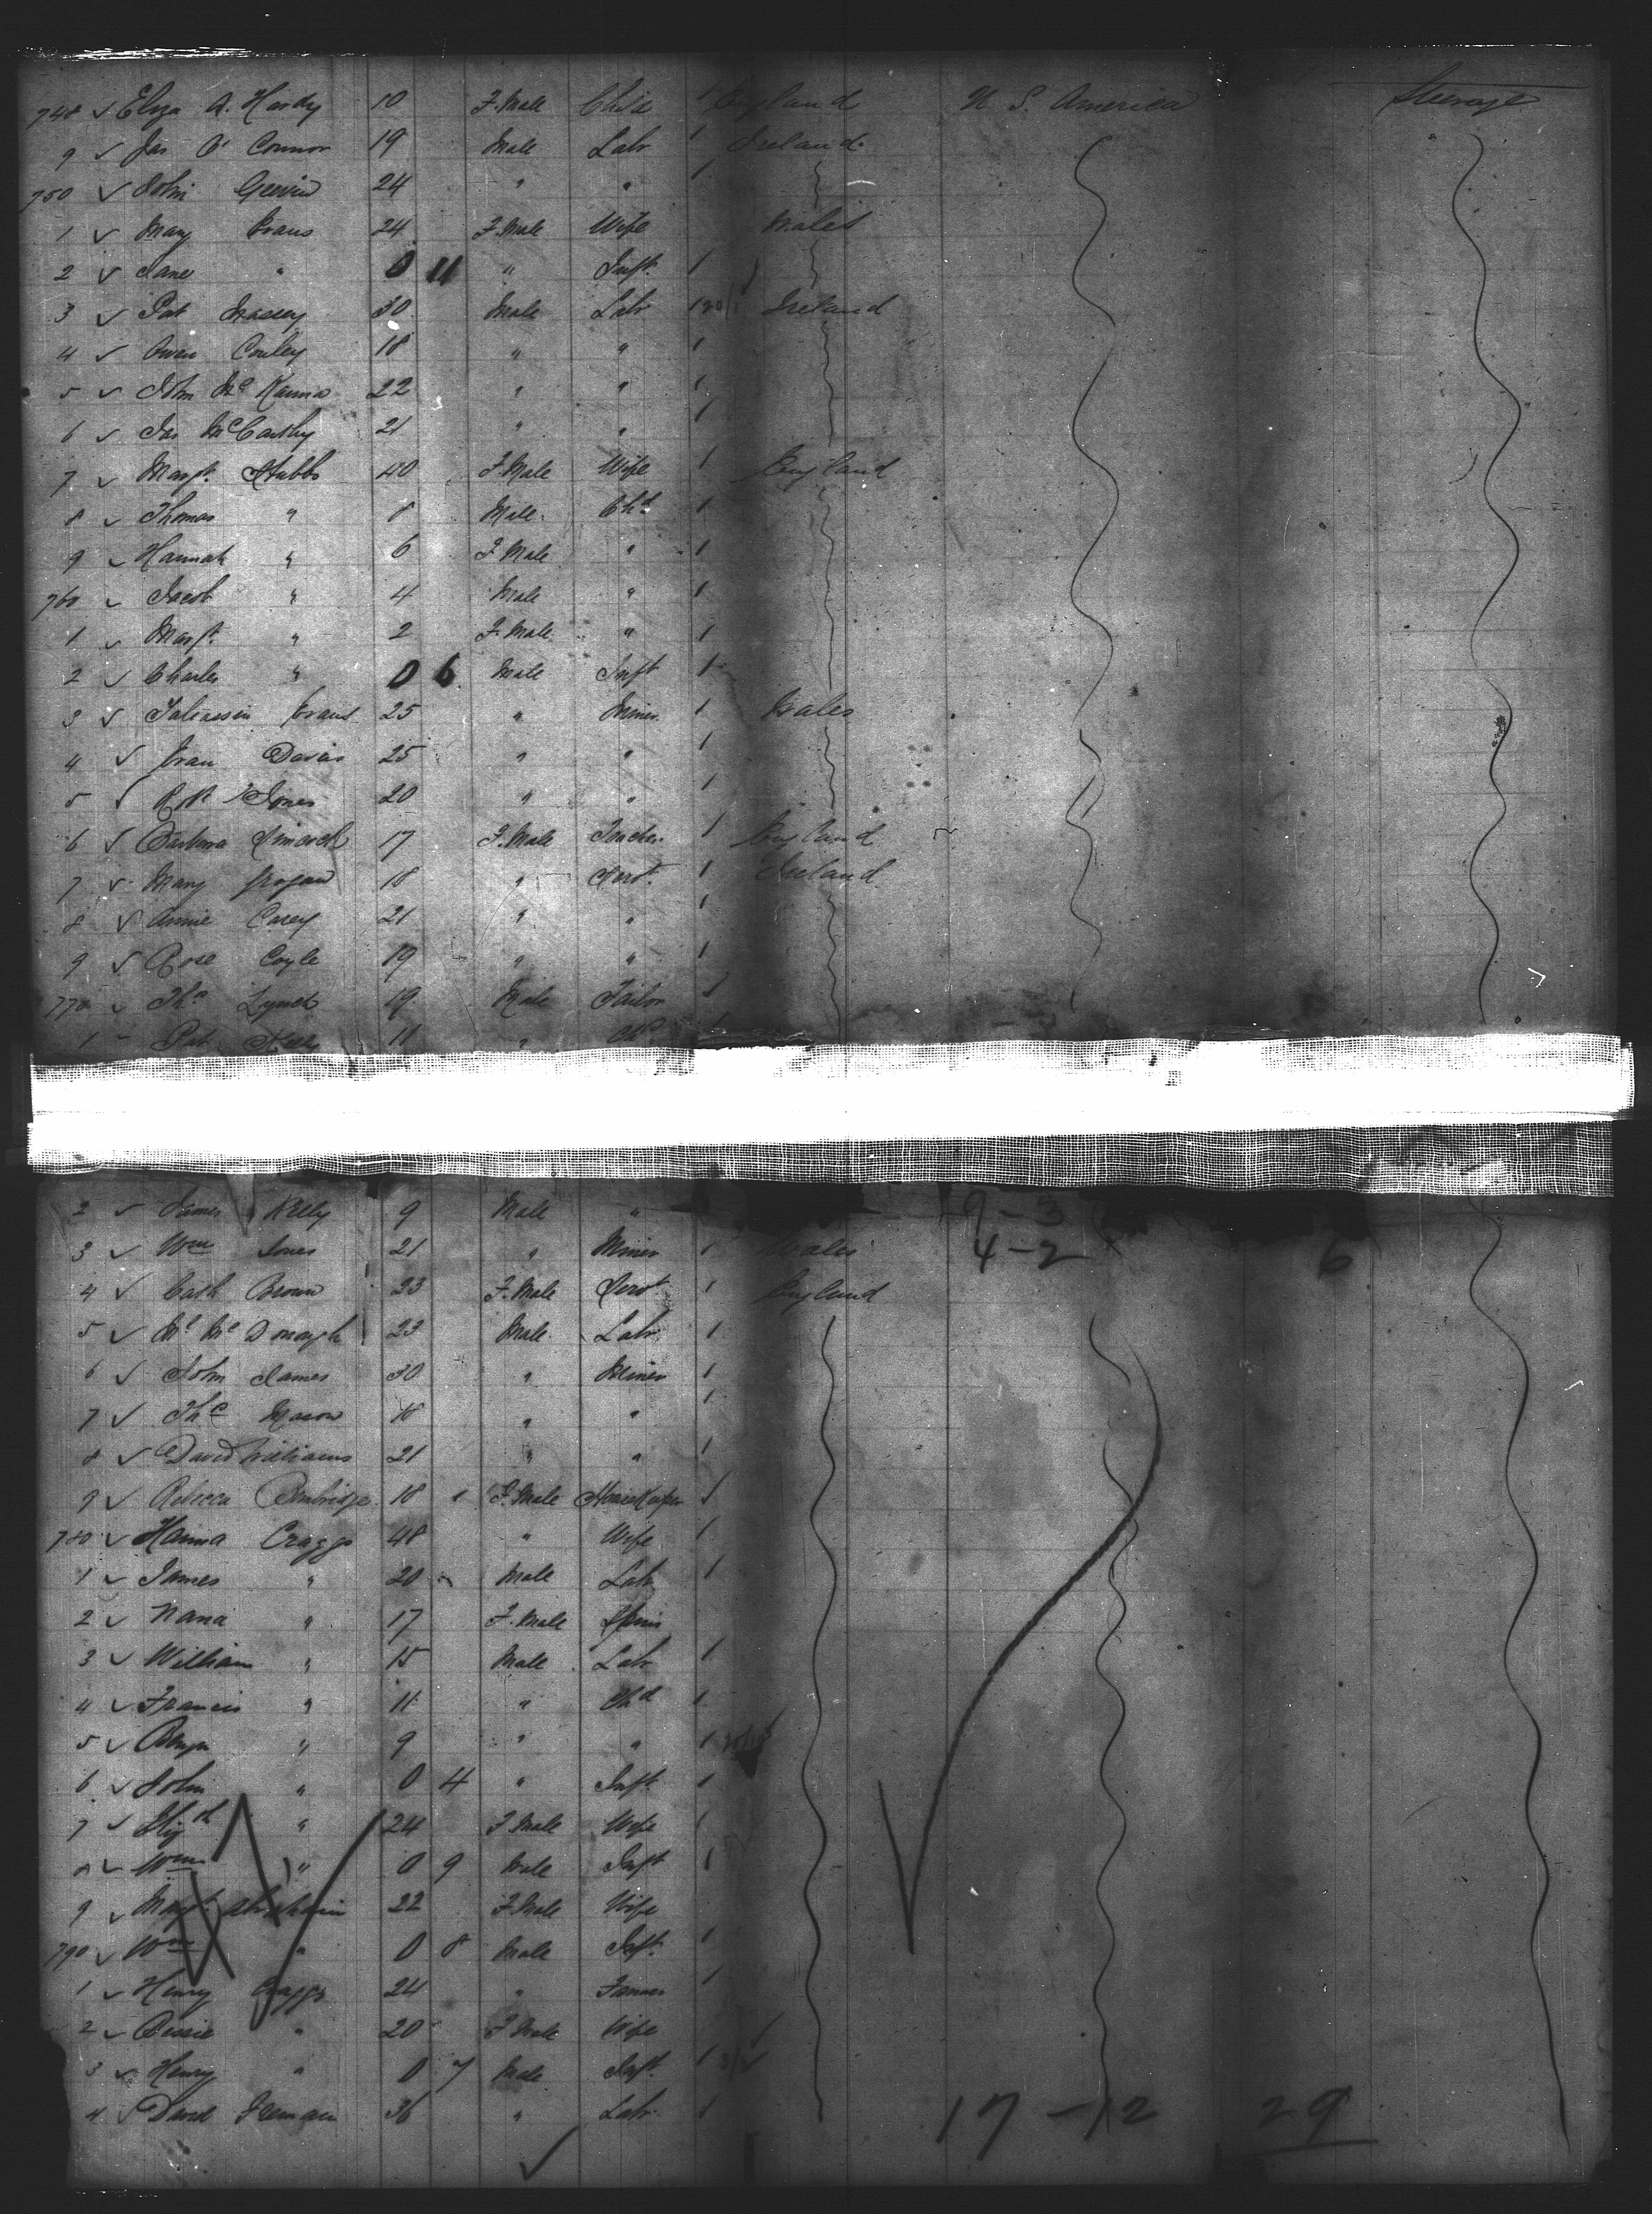 748 ✓ Eliza A. Hardy 10 F. Male Child 1 England U S. America Steerage
9 ✓ Jas O' Connor 19 Male Labr 1 Ireland
750 ✓ John 24 " " 1
1 ✓ Mary Evans 24 F. Male Wife Wales
2 ✓ Jane " 0 11 " Inft. 1
3 ✓ Pat 30 Male Labr 1 Ireland
4 ✓ Owen Conley 18 " " 1
5 ✓ John Mc Kanna 22 " " 1
6 ✓ Jas McCarthy 21 " " 1
7 ✓ Margt. Stubbs 40 F. Male Wife 1 England
8 ✓ Thomas " 8 Male Chd 1
9 ✓ Hannah " 6 F. Male " 1
760 ✓ Jacob " 4 Male " 1
1 ✓ Margt. " 2 F. Male " 1
2 ✓ Charles " 0 6 Male Inft 1
3 ✓ Taliesin Evans 25 " Miner 1 Wales
4 ✓ Evan Davies 25 " " 1
5 ✓ Robt Jones 20 " " 1
6 ✓ Barbara 17 F. Male Teacher 1 England
7 ✓ Mary Grogan 18 " Servt. 1 Ireland
8 ✓ Annie Carey 21 " " 1
9 ✓ Rose Coyle 19 " " 1
770 ✓ Thos Lynch 19 Male Tailor 1
1 Pat Kelly 11 " Chd
2 ✓ James Kelly 9 Male " 9-3
3 ✓ Wm Jones 21 " Miner 1 Wales 4-2 6
4 ✓ Cath Brown 23 F. Male Servt 1 England
5 ✓ Ml Mc Donough 23 Male Labr. 1
6 ✓ John James 30 " Miner 1
7 ✓ Thos Mason 18 " " 1
8 ✓ David Williams 21 " " 1
9 ✓ Rebecca Bembridge 18 F. Male HouseKeeper 1
780 ✓ Hanna Craggs 48 " Wife 1
1 ✓ James " 20 Male Labr 1
2 ✓ Nana " 17 F. Male Spins
3 ✓ William " 15 Male Labr 1
4 ✓ Francis " 11 " Chd 1
5 ✓ Benjn " 9 " " 1
6 ✓ John " 0 4 " Inft. 1
7 ✓ " 24 F. Male Wife 1
8 ✓ Wm " 0 9 Male Inft 1
9 ✓ Margt. Abraham 22 F. Male Wife
790 ✓ Wm " 0 8 Male Inft. 1
1 ✓ Henry Craggs 24 " Farmer 1
2 ✓ Bessie " 20 F. Male Wife
3 ✓ Henry " 0 7 Male Inft. 1
4 ✓ David 36 " Labr. 1 17-12 29